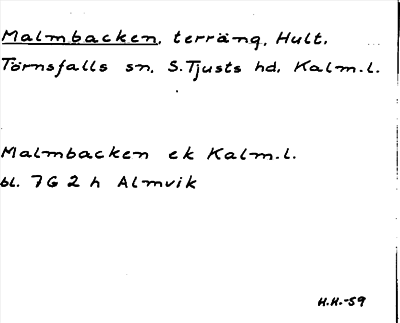 Malmbacken, terräng, Hult.
Törnsfalls sn. S.Tjusts hd. Kalm.l.
Malmbacken ek Kalm.l.
bl. 7G 2 h Almvik
H.H.-59